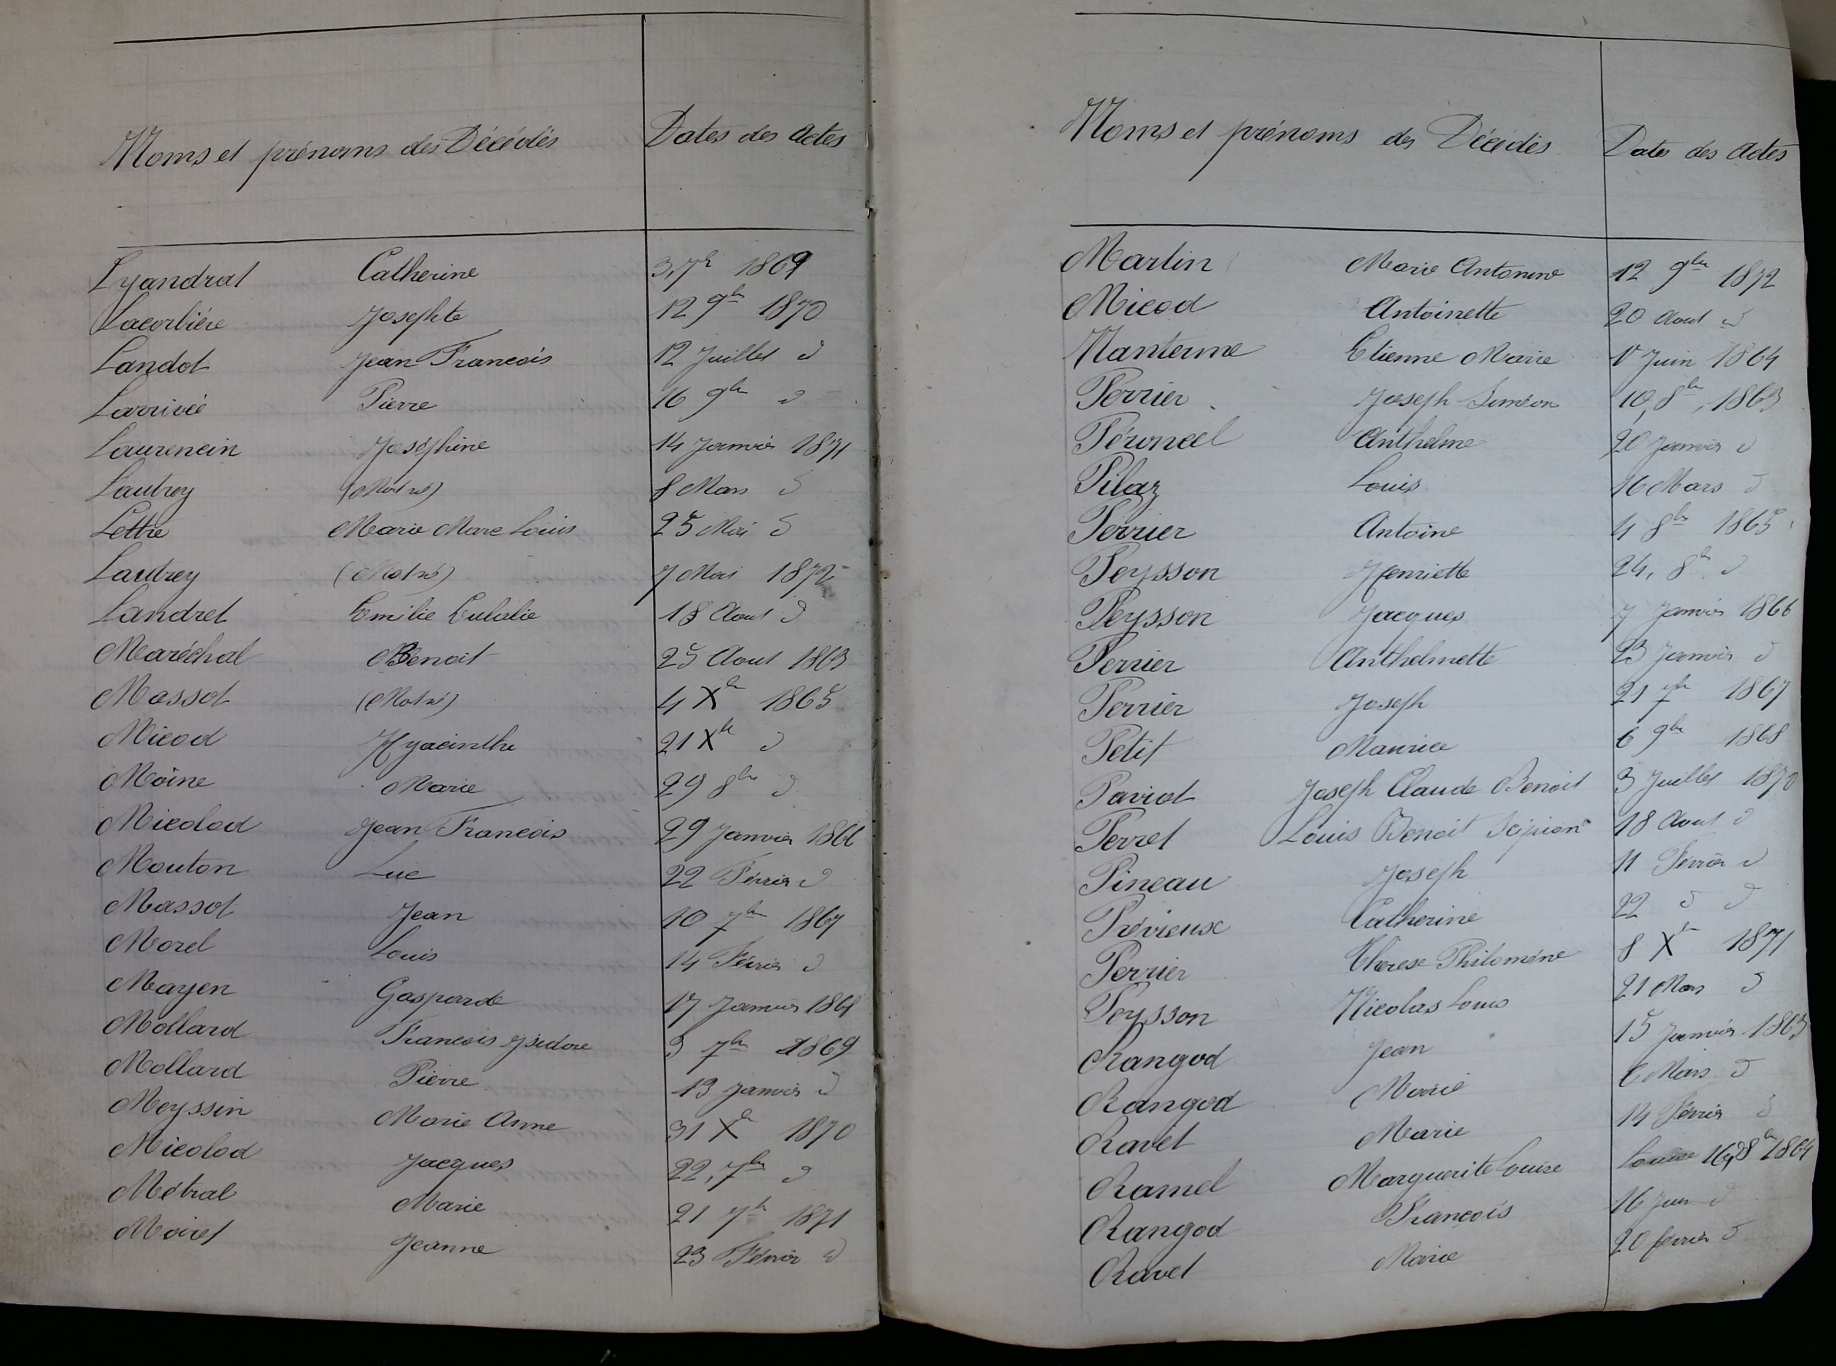 Noms et prénoms des Décédés Dates des Actes
Lyandrat Catherine 3, 7b 1869
Lacorbière Josephte 12 9b 1870
Landot Jean François 12 Juillet d
Larrivée Pierre 16 9bre d
Laurencin Joséphine 14 Janvier 1871
Lautrey (Mort né) 8 Mars d
Lettre Marie Marc Louis 25 Mai d
Lautrey (Mort né) 7 Mai 1872
Landret Emilie Eulalie 18 Aout d
Maréchal Benoit 25 Aout 1863
Massot (Mort né) 4 Xb 1865
Micod Hyacinthe 21 Xbre d
Moine Marie 29 8bre d
Micolod Jean François 29 Janvier 1866
Mouton Luc 22 Février d
Massot Jean 10 7bre 1867
Morel Louis 14 Février d
Mayen Gasparde 17 Janvier 1868
Mollard François Ysidore 3 7bre 1869
Mollard Pierre 13 Janvier d
Meyssin Marie Anne 31 Xb 1870
Micolod Jacques 22, 7bre d
Métral Marie 21 7b 1871
Moiret Jeanne 23 Février d
Noms et prénoms des Décédés Dates des Actes
Martin Marie Antonine 12 9bre 1872
Micod Antoinette 20 Aout d
Nanterme Etienne Marie Juin 1864
Perrier Joseph Siméon 10, 8bre, 1863
Péroncel Anthelme 20 Janvier d
Pilaz Louis 16 Mars d
Perrier Antoine 4 8bre 1865
Peysson Henriette 24, 8b d
Peysson Jacques 7 Janvier 1866
Perrier Anthelmette 23 Janvier d
Perrier Joseph 21 7bre 1867
Petit Maurice 6 9bre 1868
Paviot Joseph Claude Benoit 3 Juillet 1870
Perret Louis Benoit Scipion 18 Aout d
Pineau Joseph 11 Février d
Prévieux Catherine 22 d d
Perrier Thérèse Philomène 8 Xb 1871
Peysson Nicolas Louis 21 Mars d
Rangod Jean 15 Janvier 1863
Rangod Marie 6 Mars d
Ravet Marie 14 Février d
Ramel Marguerite Louise Louise 16, 8b 1864
Rangod François 16 Juin d
Ravet Marie 20 février d